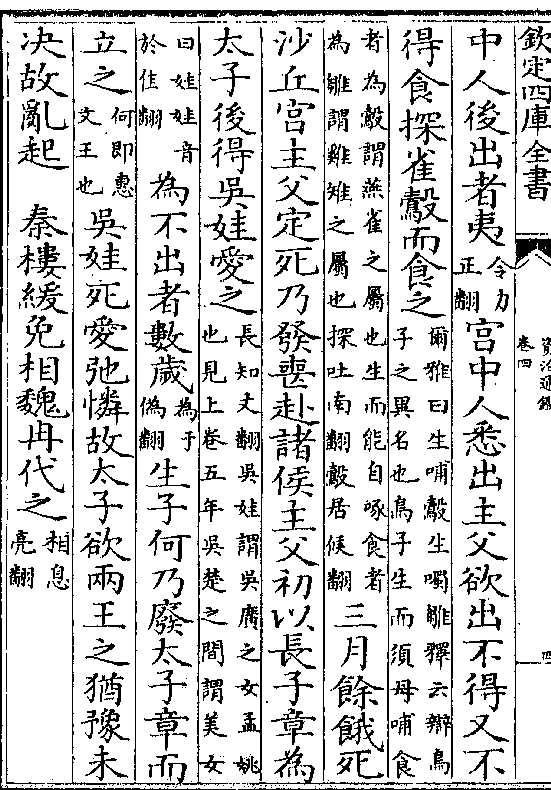 欽定四庫全書
資治通鑑
卷四
四
中人後出者夷令力正翻宮中人悉出主父欲出不得又不
得食探雀鷇而食之爾雅曰生哺鷇生噣雛釋云辯鳥子之異名也鳥子生而須母哺食
者為鷇謂燕雀之屬也生而能自啄食者為雛謂雞雉之屬也探吐南翻鷇居候翻三月餘餓死
沙丘宮主父定死乃發喪赴諸侯主父初以長子章為
太子後得吳娃愛之長知丈翻吳娃謂吳廣之女孟姚也見上卷五年吳楚之間謂美女
曰娃娃音於佳翻為不出者數歲為于偽翻生子何乃廢太子章而
立之何即惠文王也吳娃死愛弛憐故太子欲兩王之猶豫未
决故亂起　秦樓緩免相魏冉代之相息亮翻